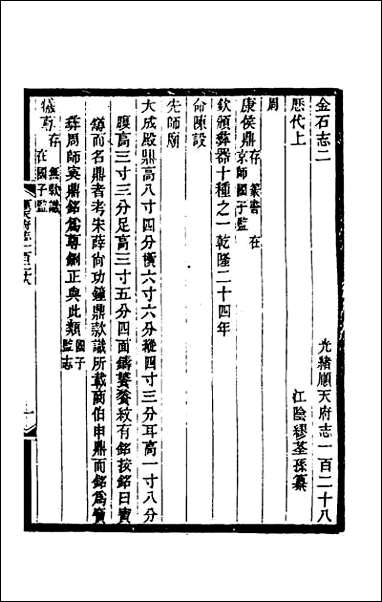 光緒順天府志一百二十八
金石志二
江陰繆荃孫纂
歷代上
周
康侯鼎存篆書在京師國子監
欽頒彝器十種之一乾隆二十四年
命陳設
先師廟
大成殿鼎高八寸四分橫六寸六分縱四寸三分耳高一寸八分
腹高三寸三分足高三寸五分四面鑄饕餮紋有銘按銘曰寶
鼒而名鼎者考朱薛尚功鐘鼎款識所載商伯申鼎而銘爲寶
彝周師㝨鼎銘爲尊鋓正與此類國子監志
犧尊存無款識在國子監
順天府志一百二十八
一